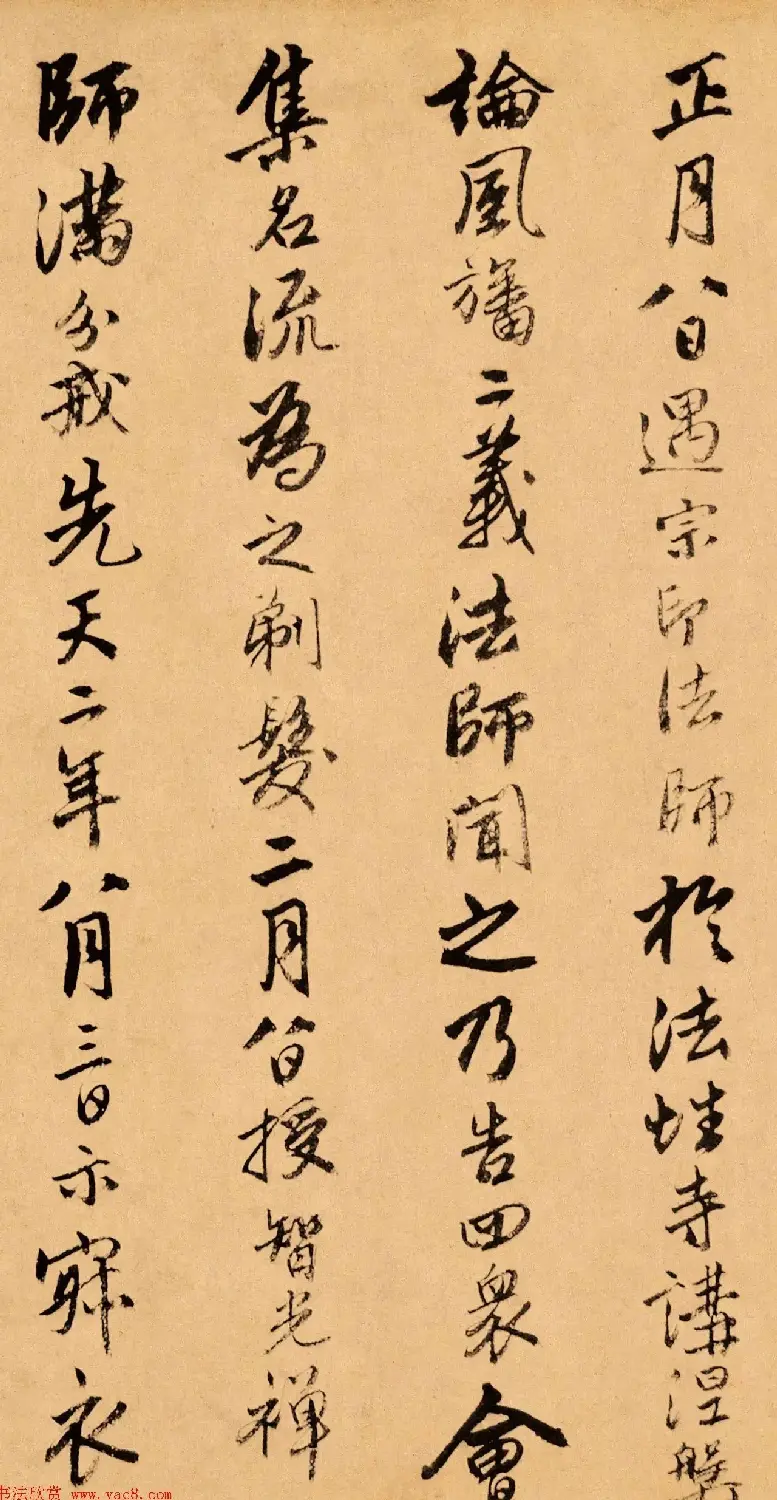 正月八日遇宗印法師於法性寺講涅槃
論風旛二義法師聞之乃告四眾會
集名流為之剃髮二月八日授智光禪
師滿分戒先天二年八月三日示寂衣
书法欣赏 www.yac8.com